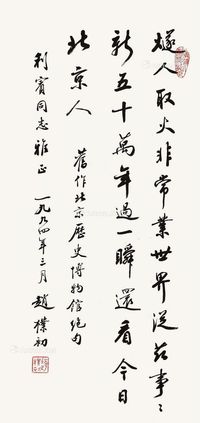 燧人取火非常業世界從茲事〻
新五十萬年過一瞬還看今日
北京人 舊作北京歷史博物館絕句
利賓同志雅正 一九九四年三月 趙樸初